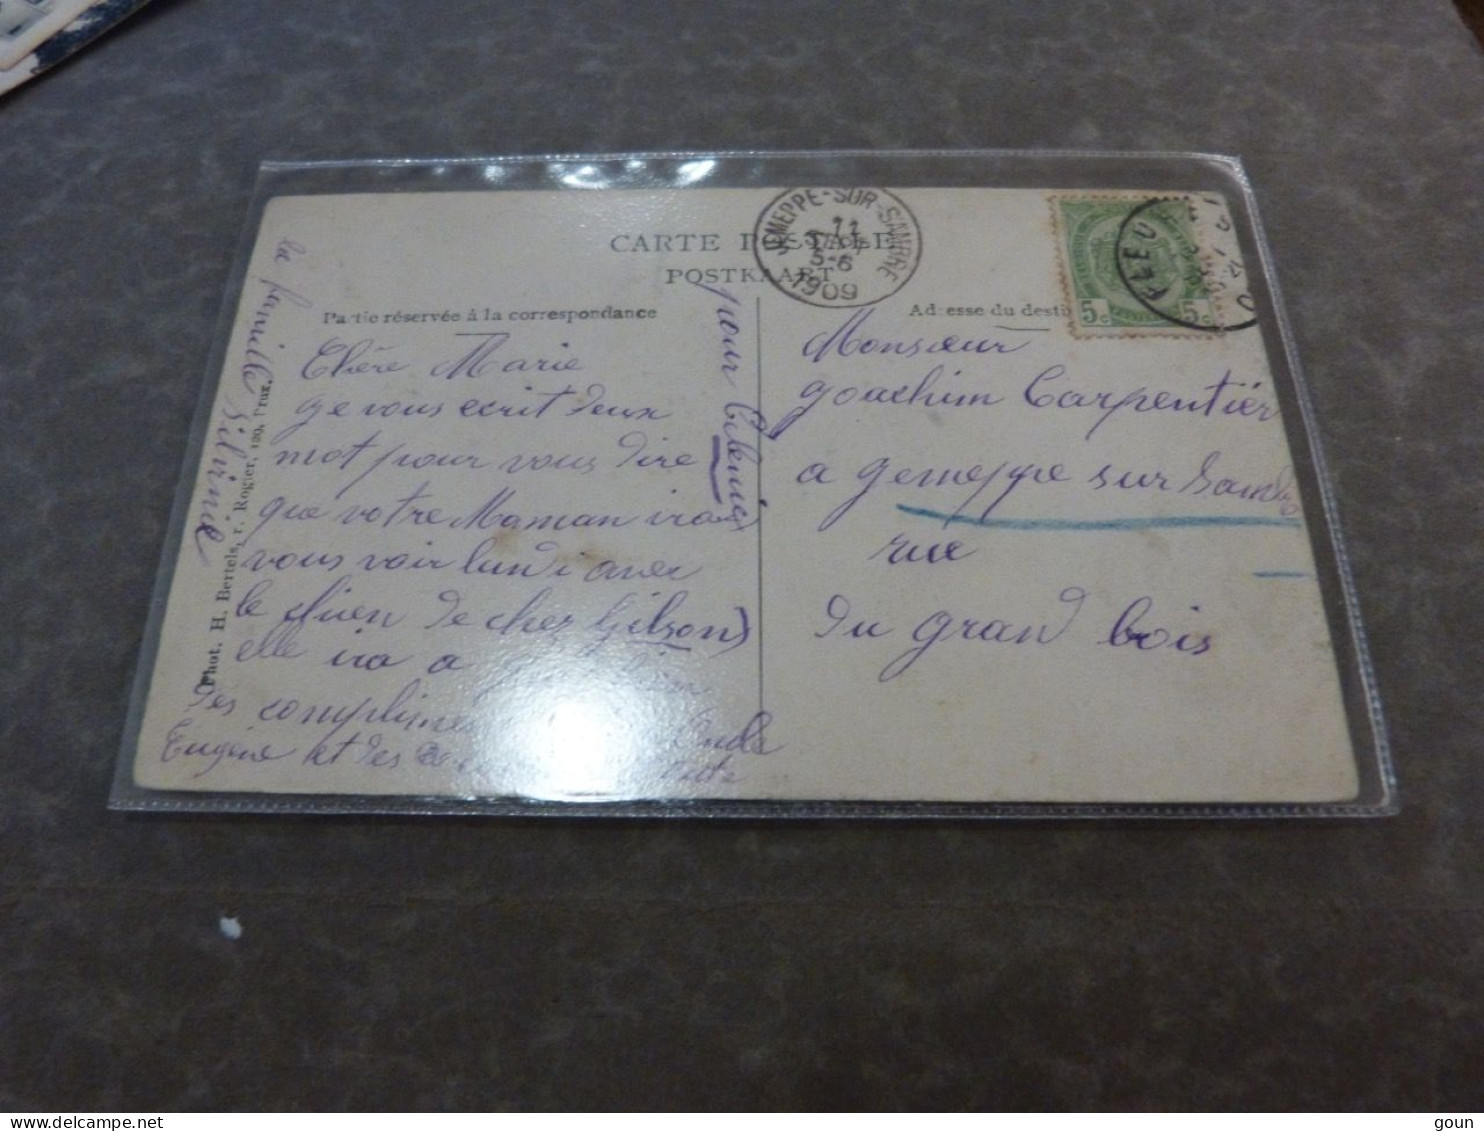 CARTE POSTALE
POSTKAART
JEMEPPE-SUR-SAMBRE
11
5-6
1909
FLEU
5c 5c
Partie réservée à la correspondance
Adresse du desti
Chère Marie
Je vous ecrit deux
mot pour vous dire
que votre Maman ira
vous voir lundi avec
le chien de chez Gilson
elle ira a
Des complime
Eugène et des
pour
la famille Silvinie
Phot. H. Bertels, r. Rogier, 120, Brux.
Monsieur
Joachim Carpentier
a Jemeppe sur Samb
rue
du grand bois
goun